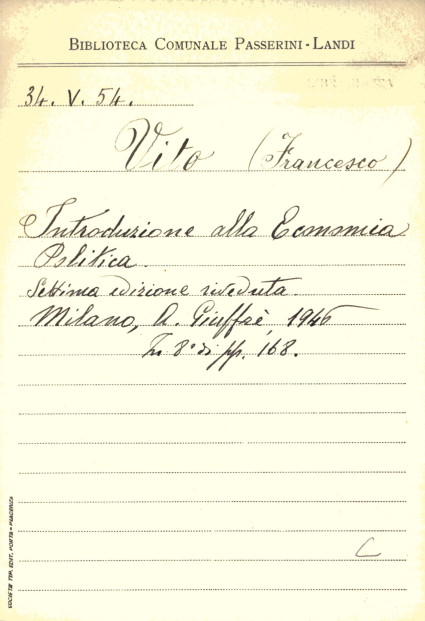 BIBLIOTECA COMUNALE PASSERINI-LANDI
34. V. 54.
Vito (Francesco)
Introduzione alla Economia
Politica.
Settima edizione riveduta.
Milano, A. Giuffrè, 1946
In 8° di pp. 168.
C
SOCIETÀ TIP. EDIT. PORTA - PIACENZA